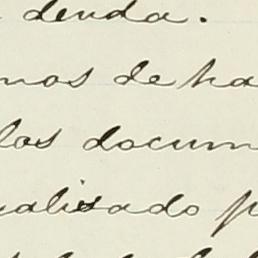 deuda.
mos de ha
los docum
ualizado p